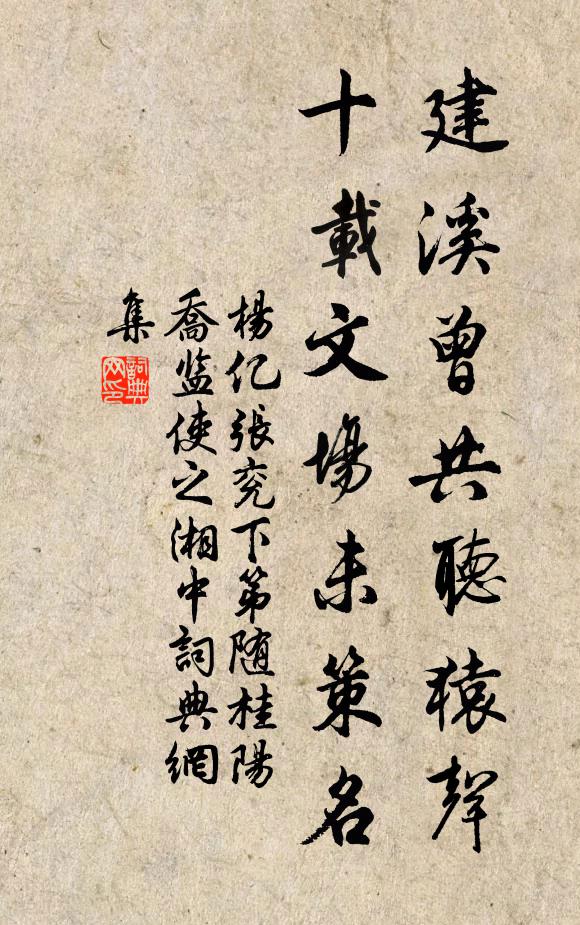 建溪曾共聽猿聲
十載文場未策名
楊亿張兖下第随桂陽
喬监使之湘中詞典網
集
詞典
网印